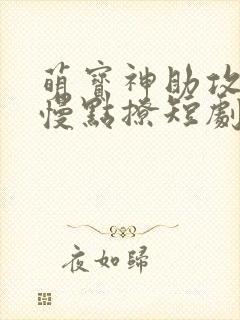 萌寶神助攻
慢點撩短劇
夜如歸